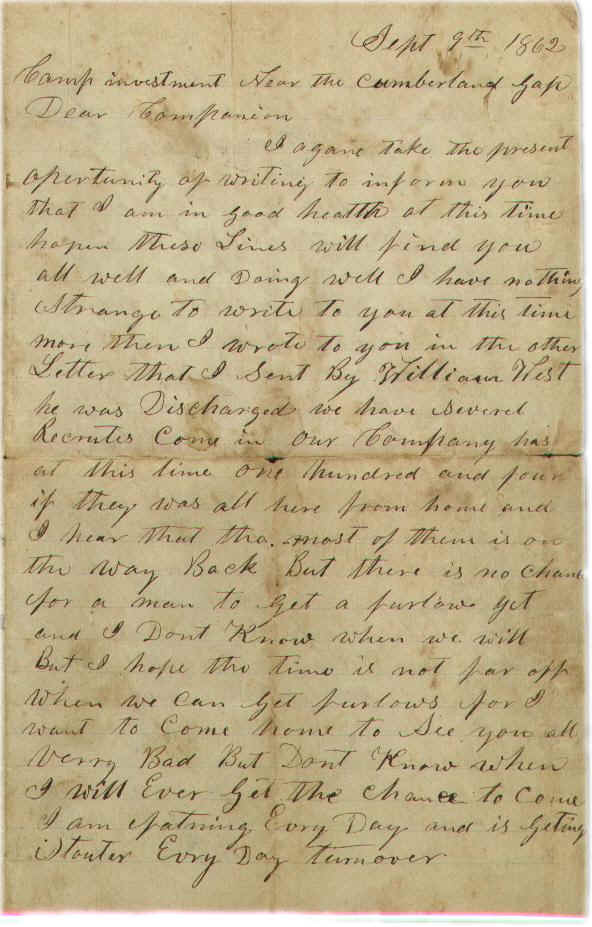 Sept 9th 1862
Camp investment Near the Cumberland Gap
Dear Companion
I agane take the present
opertunity of writing to inform you
that I am in good health at this time
hopen these Lines will find you
all well and Doing well I have nothing
Strange to write to you at this time
more then I wrote to you in the other
Letter that I Sent By William West
he was Discharged we have severel
Recrutes Come in our Company has
at this time one hundred and four
if they was all here from home and
I hear that tha. most of them is on
the way Back But there is no chanc
for a man to get a furlow yet
and I Dont Know when we will
But I hope the time is not far off
when we can get furlows for I
want to Come home to See you all
verry Bad But Dont Know when
I will Ever Get the chance to Come
I am fatning Evry Day and is Geting
Stouter Evry Day turnover